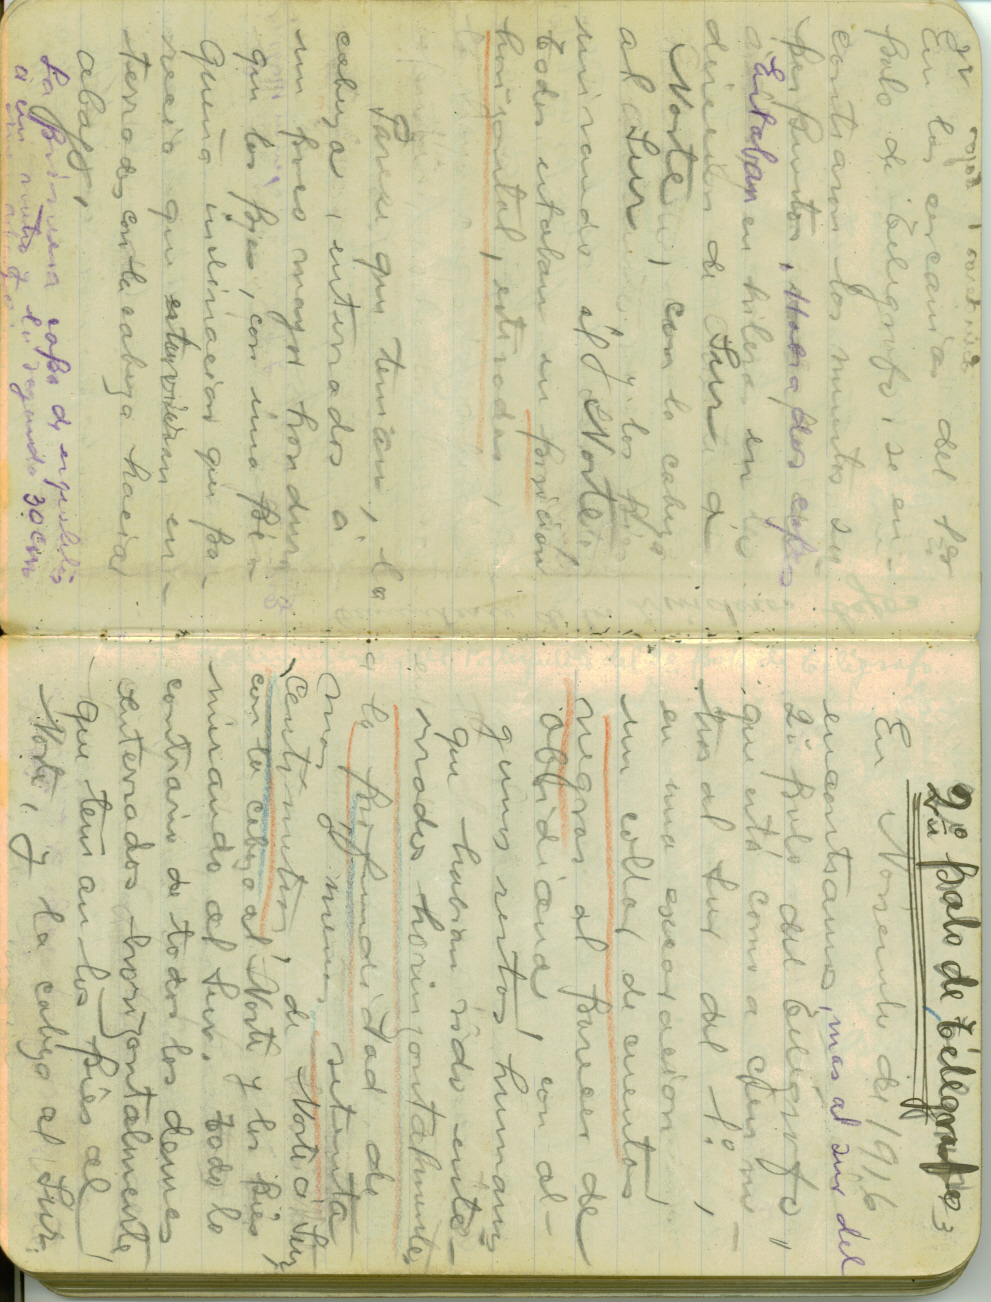 En las cercanias del 1er
Palo de telégrafo, se en-
contraron los muertos su-
perpuestos, dos capas
Estaban en hileras en la
direccion de Sur a
Norte, con la cabeza
al Sur y los pies
mirando el Norte
todos estaban en posicion
horizontal, estirados,
Parece que tenian, la
cabeza, enterrados á
un poco mayor hondura
que los pies, con una pe-
queña inclinacion que pa-
recia que estuvieran en-
terrados con la cabeza hacia
abajo,
La primera capa de esqueletos
a un metro y la segunda 30 cm
2º Palo de Telégrafo 3
En Noviembre de 1916
encontramos, mas al sur del
2º Palo del telégrafo,
que está como a cien me-
tros al sur del 1º,
en una excavacion
un collar de cuentas
negras al parecer de
obsidiana, con al-
gunos restos humanos
que habian sido ente-
rrados horizontalmente
a la profundidad de
mas, menos, setenta
centimetros, de Norte á Sur
con la cabeza al Norte y los pies
mirando al Sur. todo lo
contrario de todos los demas
enterrados horizontalmente
que tenian los piés al
Norte, y la cabeza al Sur.